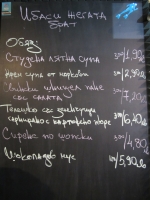 Ибаси жегата
брат
Обяд:
Студена лятна супа 300/1,90лв
крем супа от моркови 300/2,90лв
Пилешки със салата 350/7,20лв
Телешко със зеленчуци
сервирано с картофено пюре 350/6,40лв
Сирене по шопски 300/4,80
Шоколадов мус 150/5,90лв